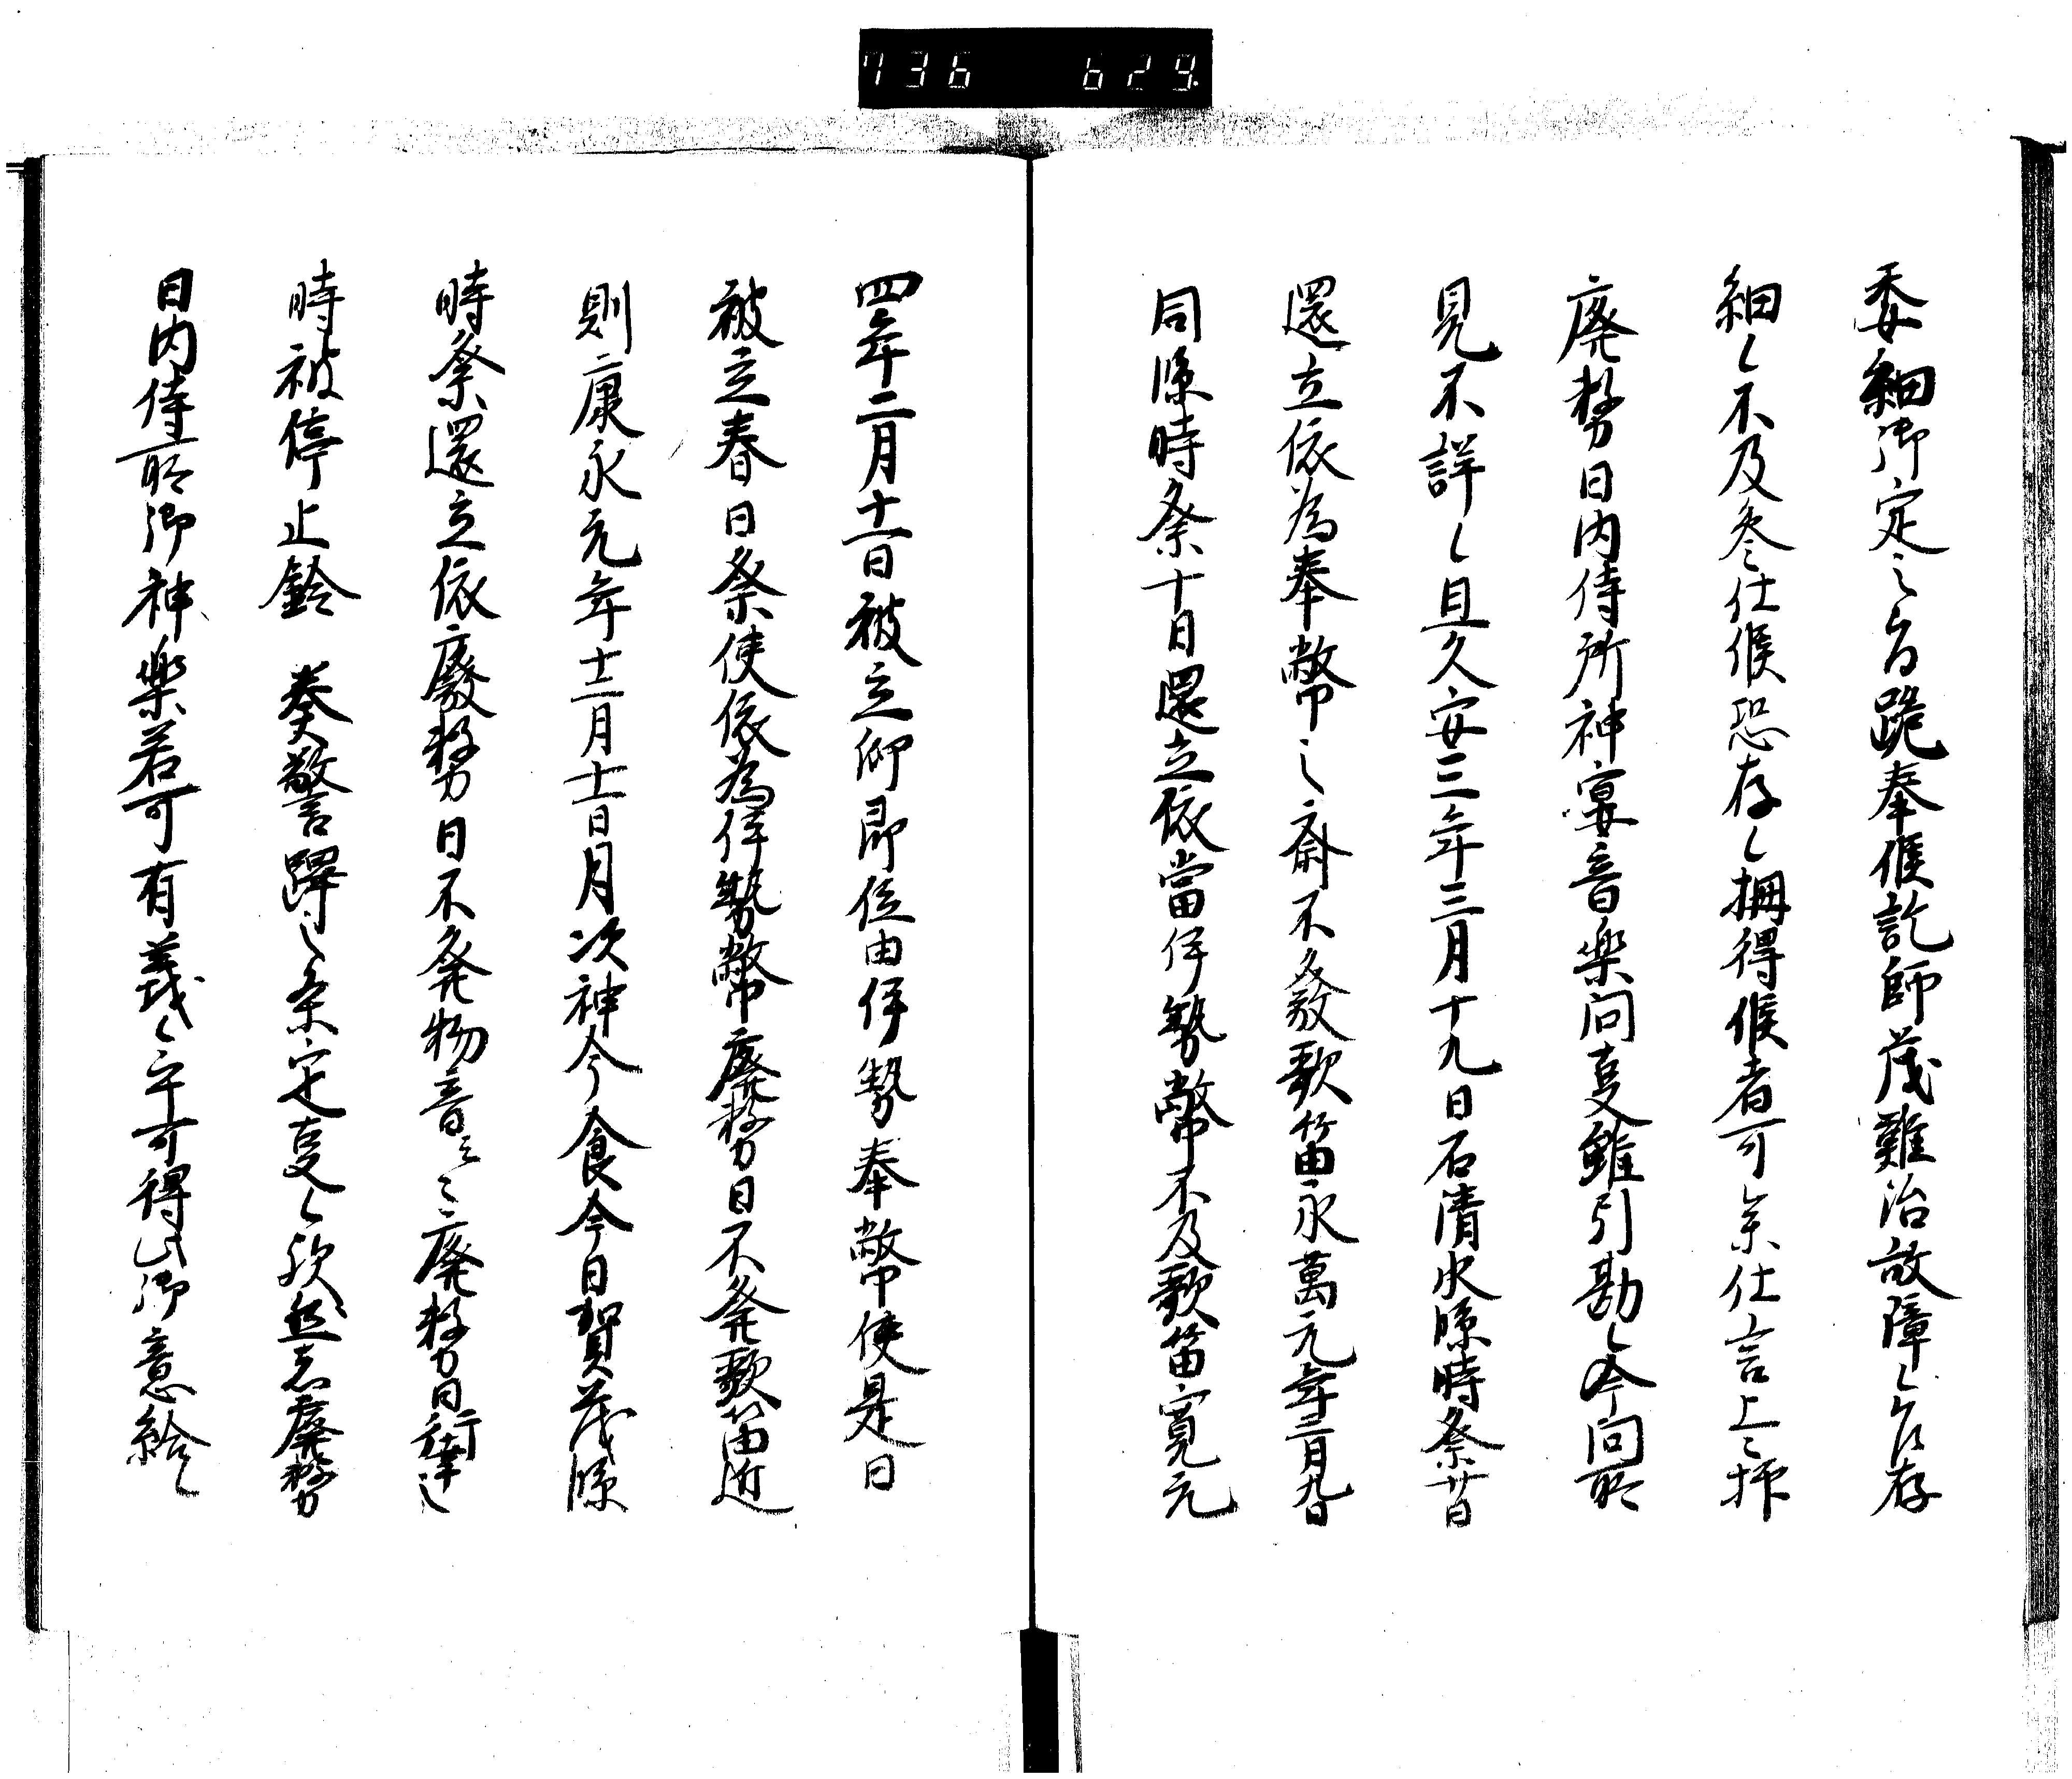 736 629
委細御定之旨跪奉候訖師茂難治故障之旨存
細々不及参仕候恐存之搆得候者可参仕言上之抔
廃務日内侍所神宴音楽問事雖引勘之今向所
見不詳之且久安三年三月十九日石清水臨時祭廿日
還立依為奉幣之斎不発歌笛永萬元年三月九日
同臨時祭十日還立依當伊勢幣不及歌笛寛元
四年二月十一日被立御即位由伊勢奉幣使是日
被立春日祭使依為伊勢幣廃務日不発歌笛近
則康永元年十二月十一日月次神今食今日賀茂臨
時祭還立依廃務日不発物音云々廃務日行幸之
時被停止鈴 奏警蹕之条定事之歟然者廃務
日内侍所御神楽若可有議之乎可得此御意給之